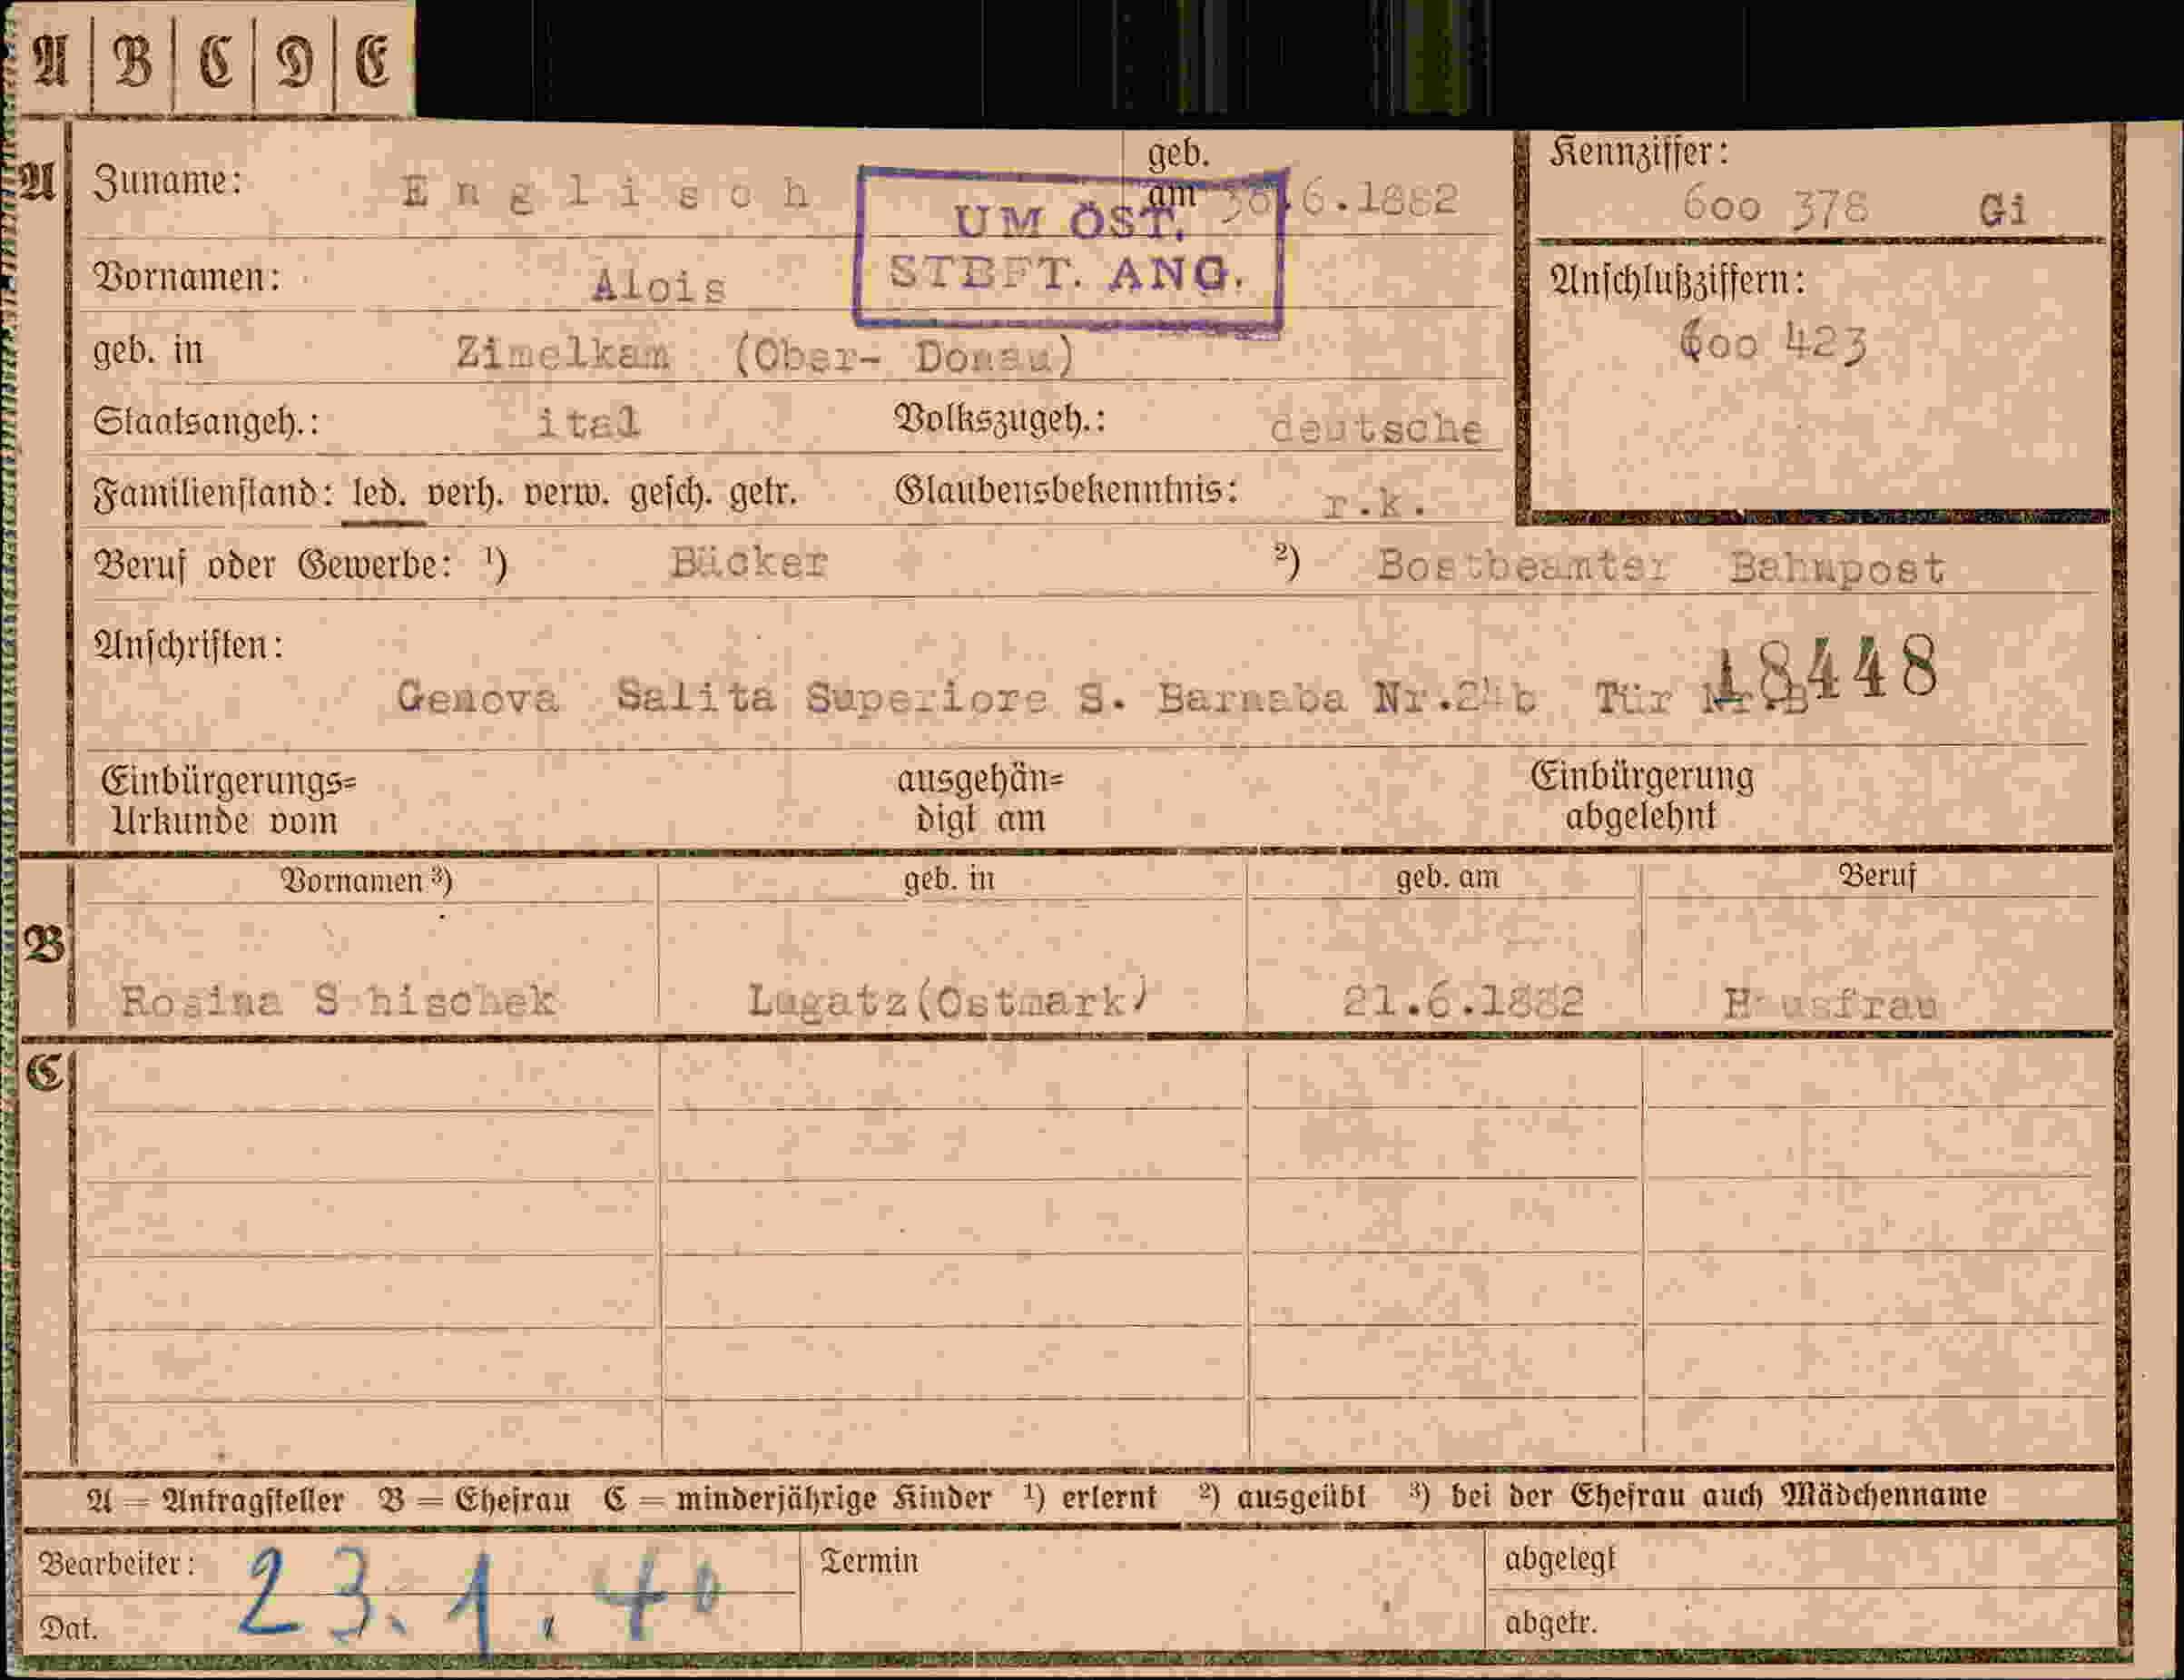 A | B | C | D | E
A Zuname: Englisch geb. am 30.6.1882
UM ÖST.
STBFT. ANG.
Kennziffer:
600 378 Gi
Vornamen: Alois
Anschlußziffern:
600 423
geb. in Zimelkam (Ober- Donau)
Staatsangeh.: ital Volkszugeh.: deutsche
Familienstand: led. verh. verw. gesch. getr. Glaubensbekenntnis: r.k.
Beruf oder Gewerbe: ¹) Bäcker ²) Bostbeamter Bahnpost
Anschriften:
18448
Genova Salita Superiore S. Barnaba Nr.24b Tür
Einbürgerungs= ausgehän= Einbürgerung
Urkunde vom digt am abgelehnt
Vornamen ³) geb. in geb. am Beruf
B
Rosina S hischek Lugatz(Ostmark) 21.6.1882 H usfrau
C
A = Antragsteller B = Ehefrau C = minderjährige Kinder ¹) erlernt ²) ausgeübt ³) bei der Ehefrau auch Mädchenname
Bearbeiter: Termin abgelegt
23.1.40
Dat. abgetr.